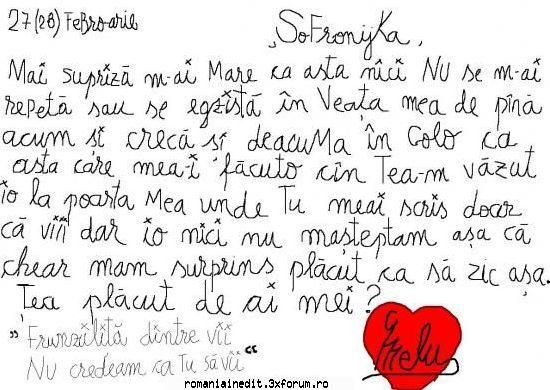 27(28) FeBroarie
„SoFronijKa,
Mai supriză m-ai Mare ca asta nici NU se m-ai
repetă sau se egzistă în Veața mea de pînă
acum și crecă și deacuMa în Colo ca
asta care mea-i făcuto cîn Tea-m văzut
io la poarta Mea unde Tu meai scris doar
că viii dar io nici nu mașteptam așa că
chear mam surprins plăcut ca să zic așa.
Țea plăcut de ai mei?
„Frunzuliță dintre vii
Nu credeam ca Tu să vii“
Ghelu
romaniainedit.3xforum.ro